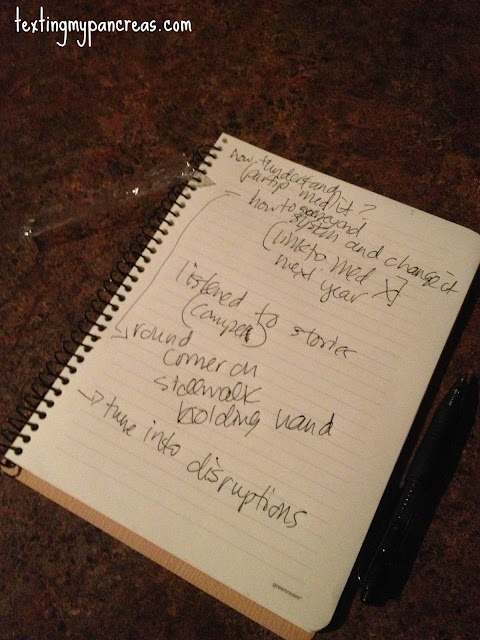 textingmypancreas.com
how + understand
(partip med it?
how to go beyond
system and change it
(link to med X]
next year
listened to stories
(camper)
→ round
corner on
sidewalk
holding hand
→ tune into disruptions
greenroom